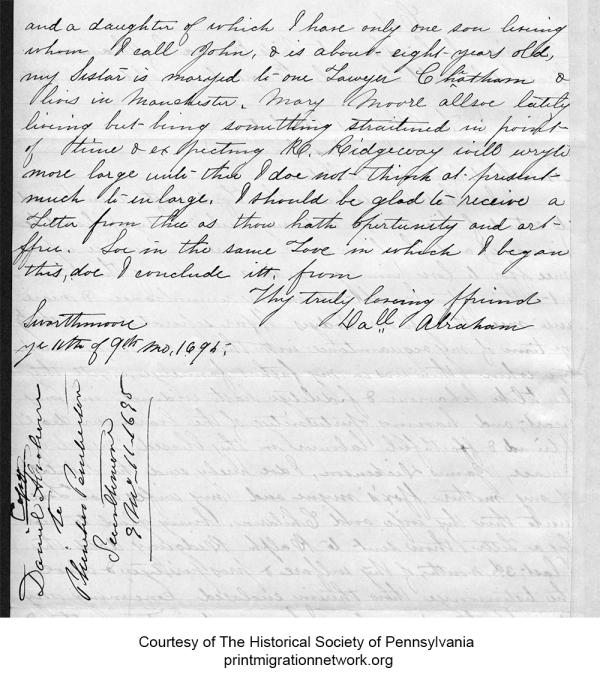 and a daughter of which I have only one son liveing
whom I call John, & is about eight years old,
my Sistar is maryed to one Lawyer Chatham &
livis in Manchester. Mary Moore allsoe lately
liveing but being something straitened in point
of time & expecting RC. Ridgeway will wryte
more large unto thee I doe not think at present
much to enlarge. I should be glad to receive a
Letter from thee as thou hath opertunity and art
ffree. Soe in the same Love in which I began
this, doe I conclude itt. from
Thy truly loveing ffriend
Dall Abraham
Swarthmoore
ye 11th of 9th mo, 1695.
Copy
Daniel Abraham
to
Phinehas Pemberton
Swarthmoore
9 Mo. 11-1695
Courtesy of The Historical Society of Pennsylvania
printmigrationnetwork.org